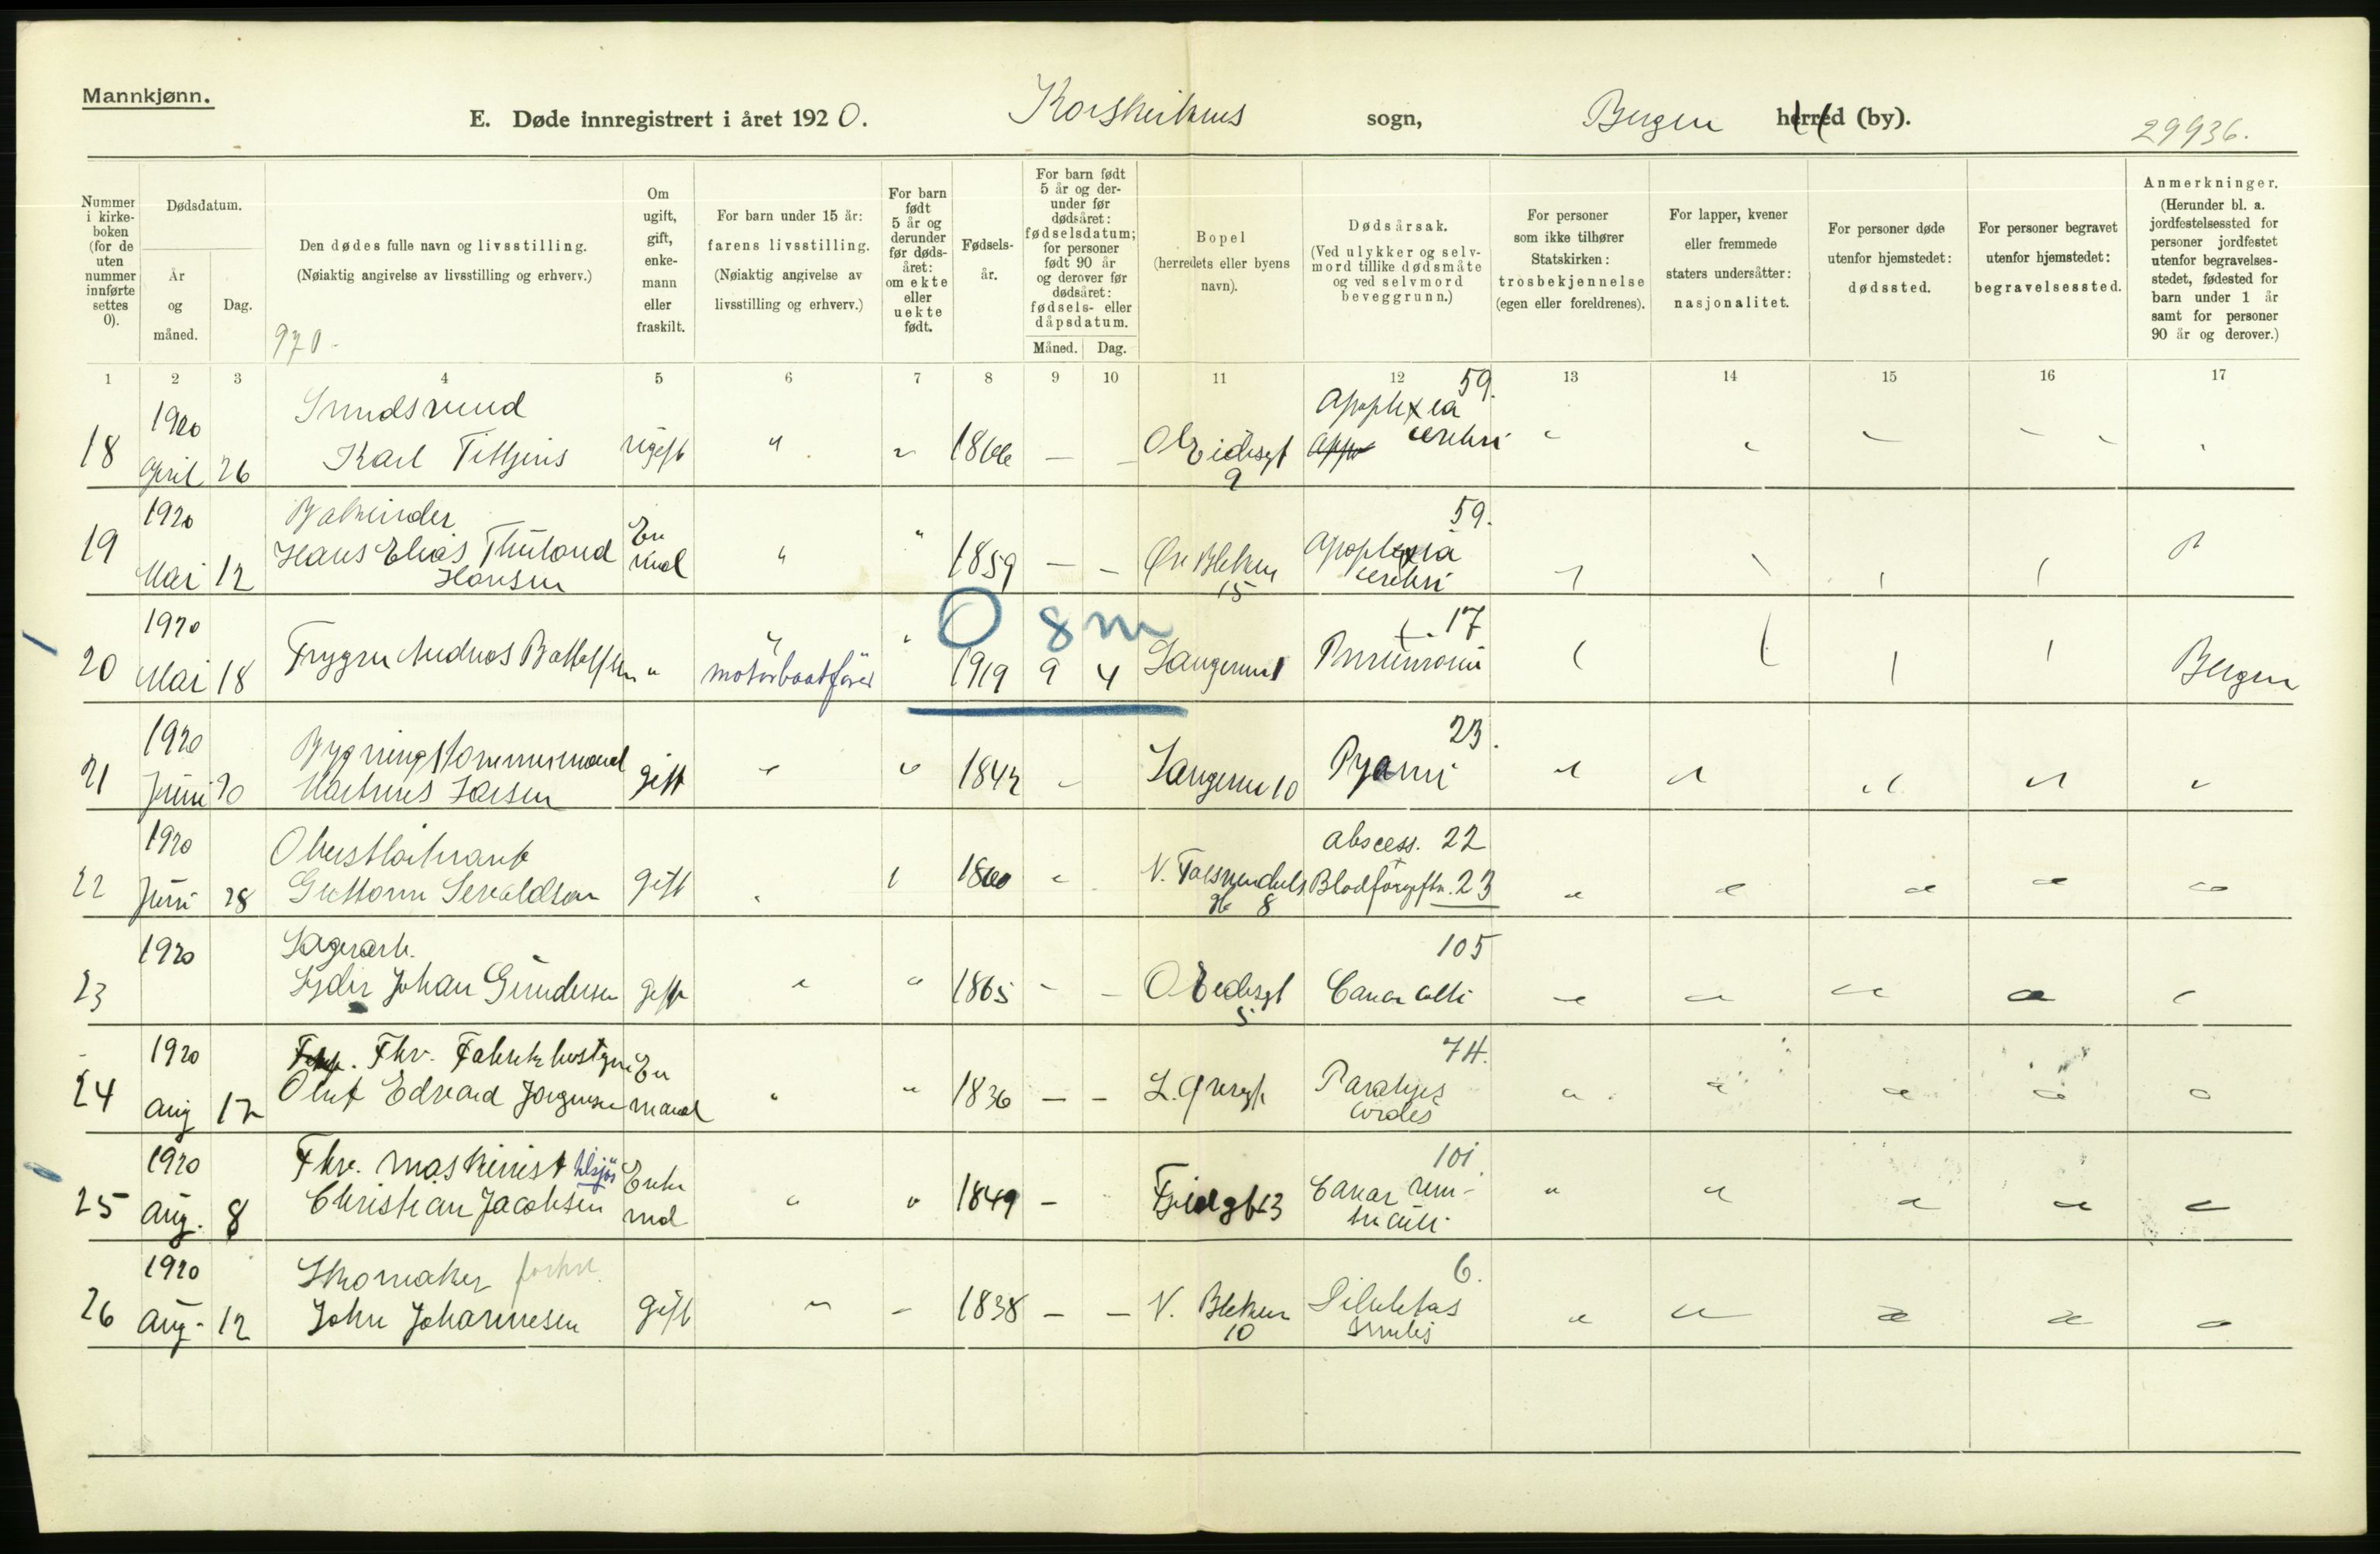 Mannkjønn.
E. Døde innregistrert i året 1920. Korskirkens sogn, Bergen herred (by). 29936.
Nummer i kirkeboken (for de uten nummer innførte settes 0).
Dødsdatum.
År og måned.
Dag.
Den dødes fulle navn og livsstilling.
(Nøiaktig angivelse av livsstilling og erhverv.)
970.
Om ugift, gift, enkemann eller fraskilt.
For barn under 15 år: farens livsstilling.
(Nøiaktig angivelse av livsstilling og erhverv.)
For barn født 5 år og derunder før dødsåret: om ekte eller uekte født.
Fødselsår.
For barn født 5 år og derunder før dødsåret: fødselsdatum; for personer født 90 år og derover før dødsåret: fødsels- eller dåpsdatum.
Måned. Dag.
Bopel
(herredets eller byens navn).
Dødsårsak.
(Ved ulykker og selvmord tillike dødsmåte og ved selvmord beveggrunn.)
For personer som ikke tilhører Statskirken: trosbekjennelse
(egen eller foreldrenes).
For lapper, kvener eller fremmede staters undersåtter: nasjonalitet.
For personer døde utenfor hjemstedet: dødssted.
For personer begravet utenfor hjemstedet: begravelsessted.
Anmerkninger.
(Herunder bl. a. jordfestelsessted for personer jordfestet utenfor begravelsesstedet, fødested for barn under 1 år samt for personer 90 år og derover.)
1 2 3 4 5 6 7 8 9 10 11 12 13 14 15 16 17
1920 59.
Apoplexia
18 April 26 Karl ugift " " 1866 — — cerebri
9
1920 59.
19 Mai 12 Hans Elias Hansen " " 1859 — — Øvre Bleken Apoplexia
15 cerebri
0 8 m
1920 17
20 Mai 18 Trygve " motorbaatfører " 1919 9 4 Pneumoni Bergen
1920 Bygningstømmermand 23.
21 Juni 20 Martinus Larsen gift " " 1842 10 Pyæmi
1920 Oberstløitnant abscess. 22
22 Juni 28 Guttorm Sevaldson gift 1860 Blodforgiftn. 23
8
1920 Lagerarb. 105
23 Johan Gundersen gift " " 1865 — Cancer colli
5
1920 Fhv. 74.
24 Aug 12 Oluf Edvard Jørgensen Enkemand " " 1836 — — Paralysis cordis
1920 Fhv. maskinist 101.
25 Aug. 8 Christian Jacobsen " " 1849 — Cancer ventriculi
1920 Skomaker forhv. 6.
26 Aug. 12 John Johannesen gift " 1838 — — N. Bleken
10